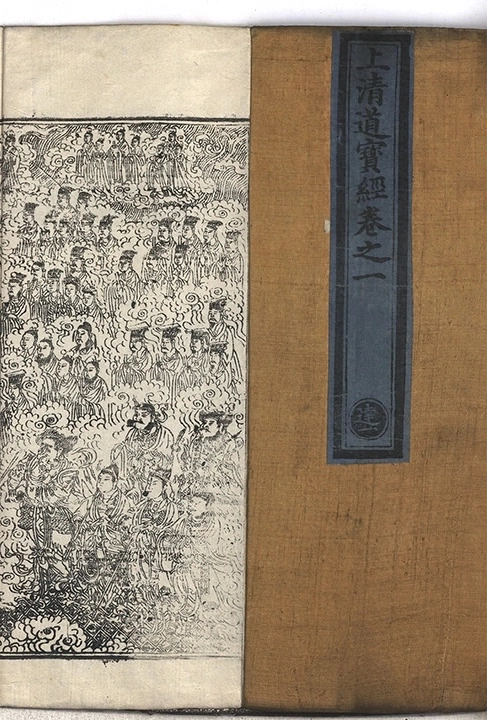 上清道寶經卷之一
達一